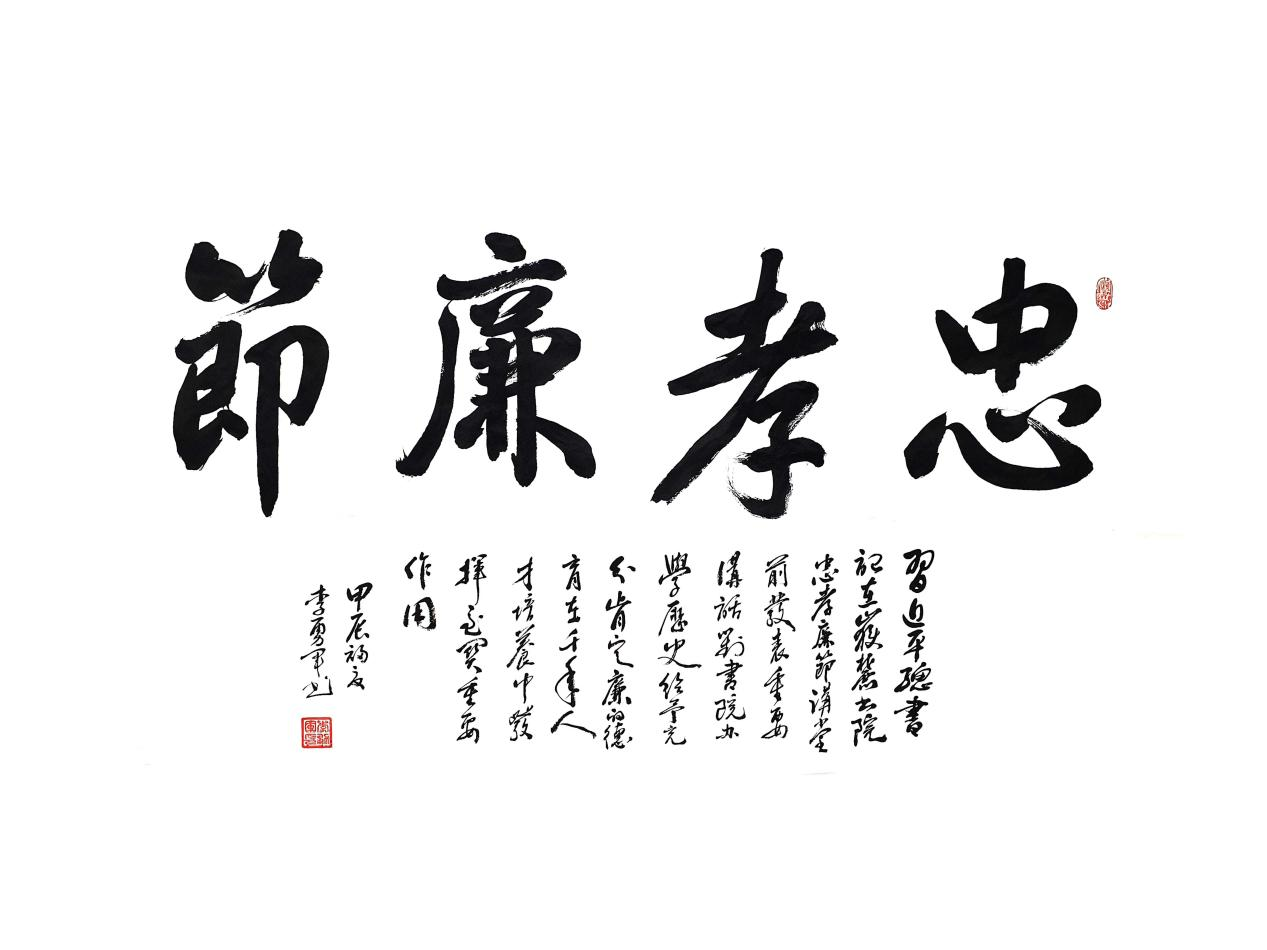 忠孝廉節
習近平總書
記在嶽麓書院
忠孝廉節講堂
前發表重要
講話對書院办
學歷史给予充
分肯定廉的德
育在千年人
才培養中發
揮至關重要
作用
甲辰初夏
李勇軍书